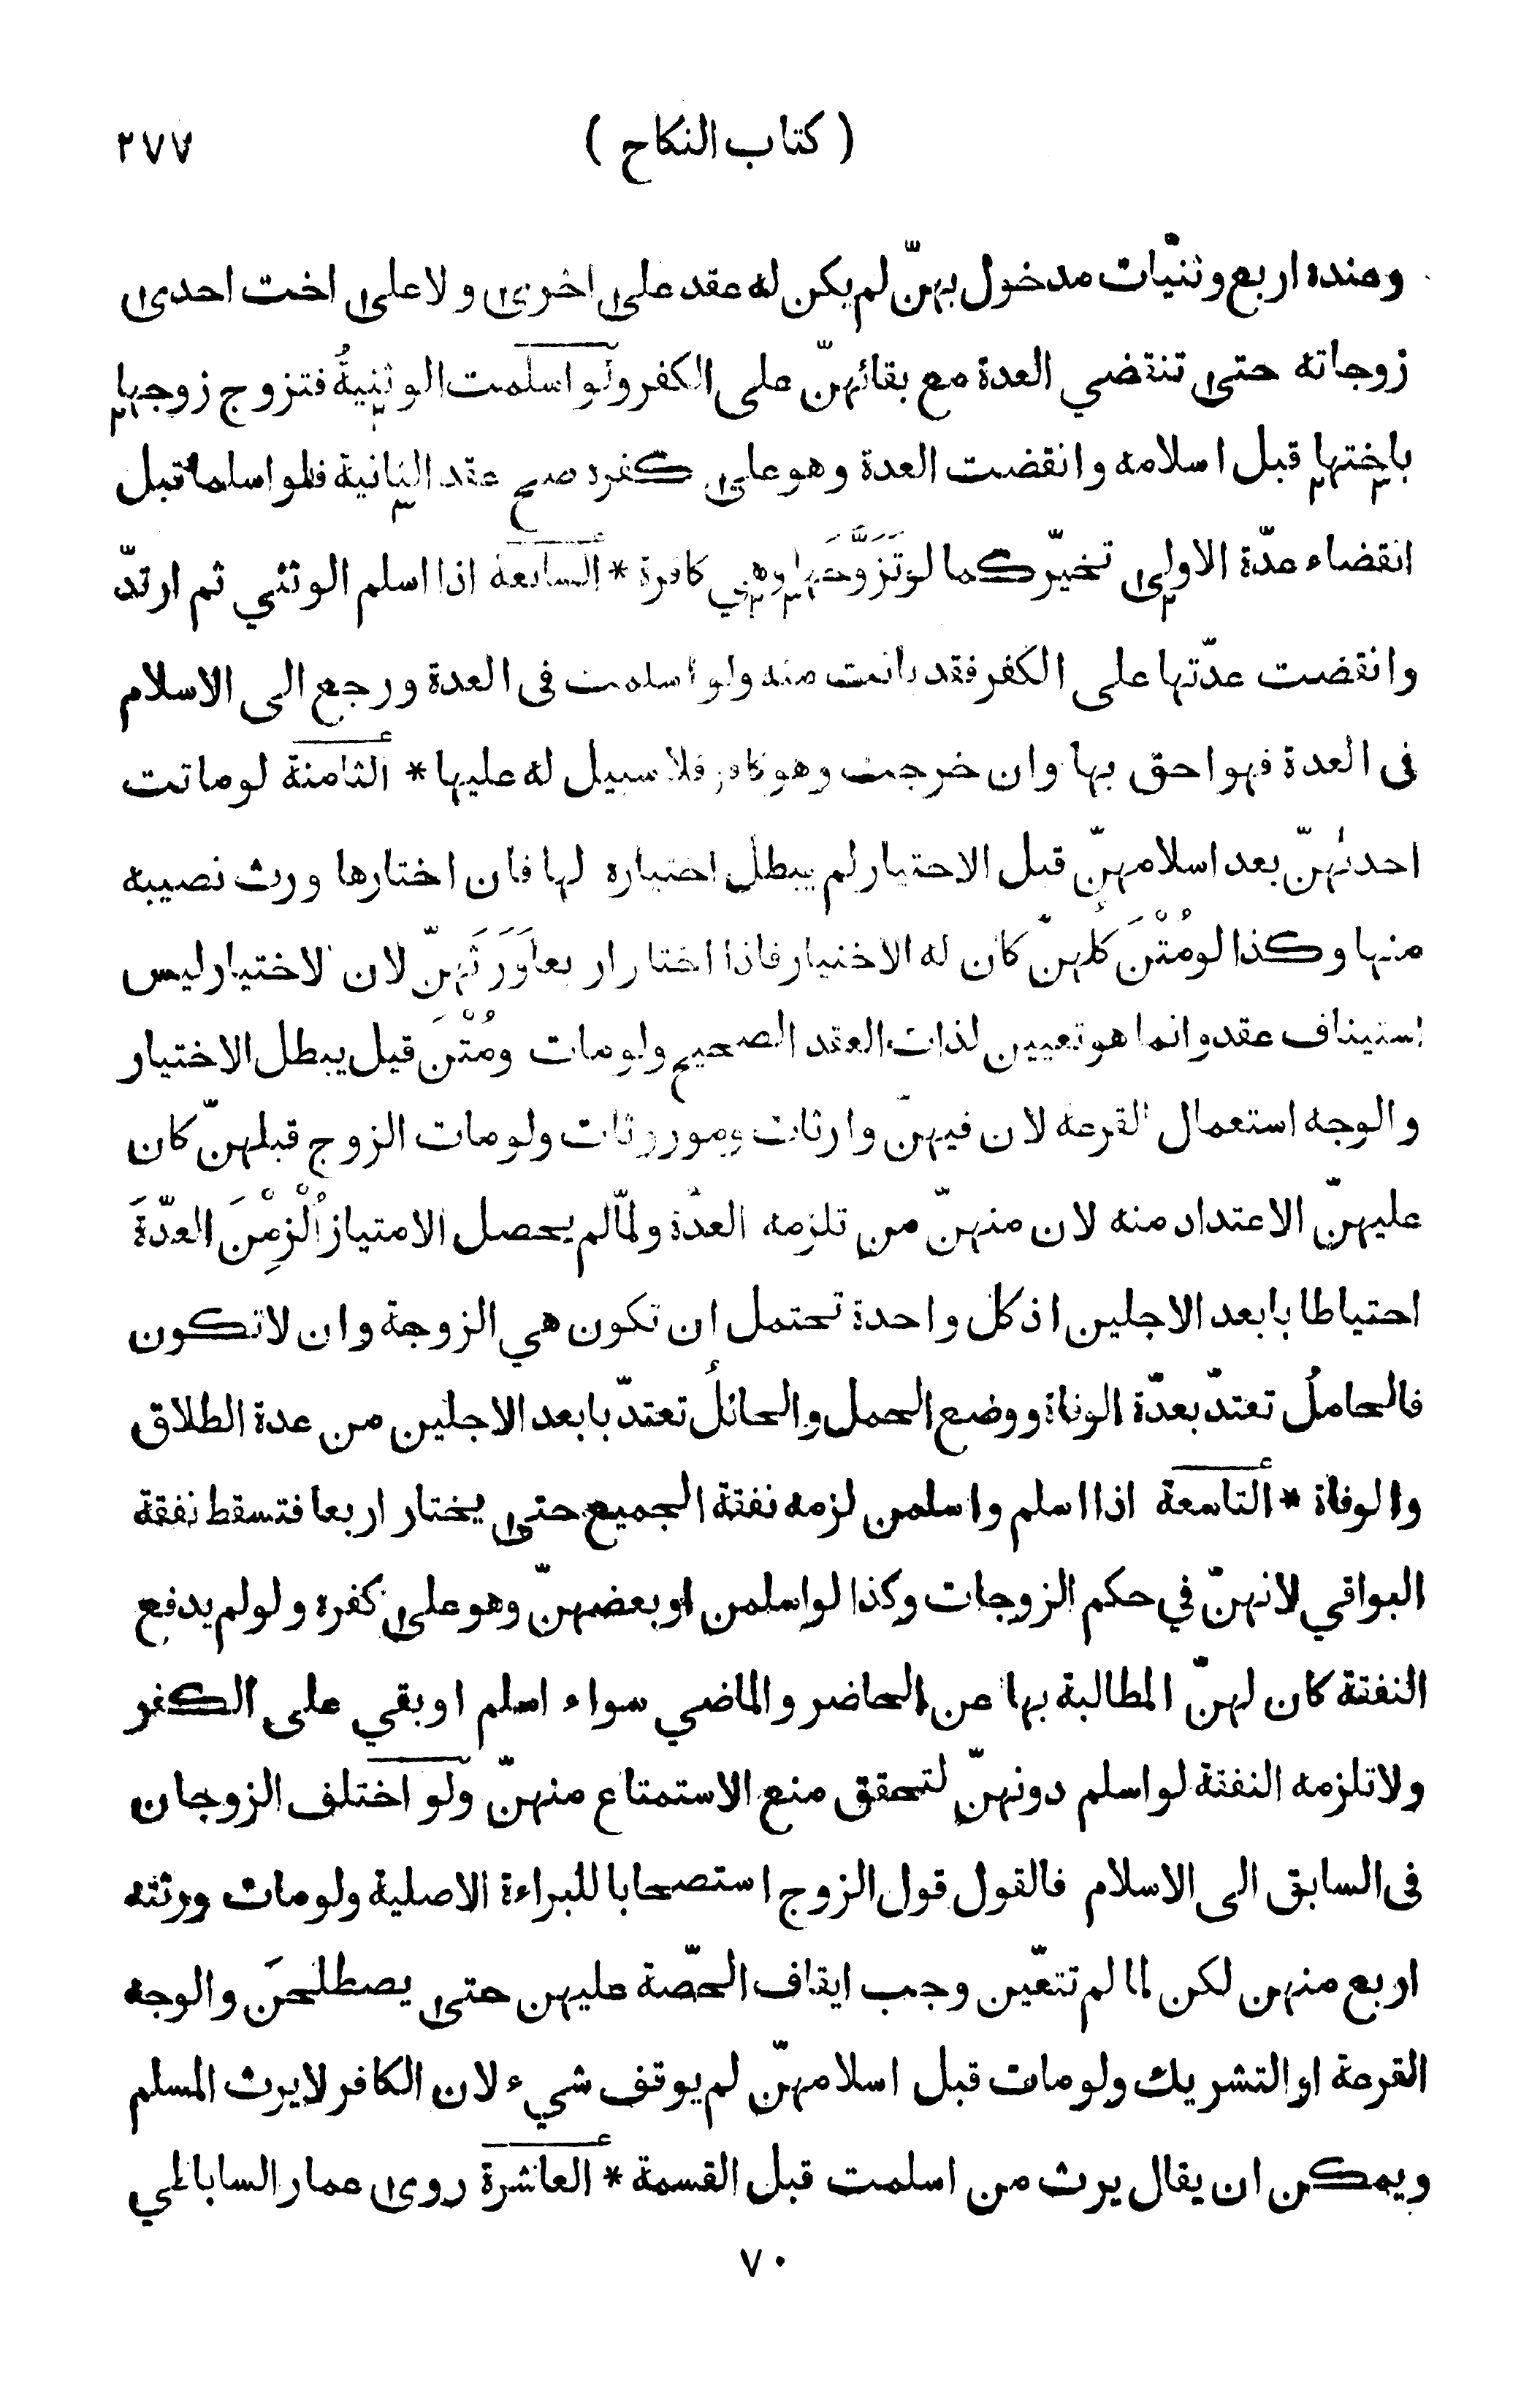 ( كتاب النكاح ) ٢٧٧
وعنده اربع وثنيّات مدخول بهنّ لم يكن له عقد على اخرى ولا على اخت احدى
زوجاته حتى تنقضي العدة مع بقائهنّ على الكفر ولو اسلمت الوثنيةُ فتزوج زوجها
باختها قبل اسلامه وانقضت العدة وهو على كفره صح عقد الثانية فلو اسلما قبل
انقضاء عدّة الاولى تخيّر كما لو تَزَوَّجَها وهي كافرة * السابعة اذا اسلم الوثني ثم ارتدّ
وانقضت عدّتها على الكفر فقد بانت منه ولو اسلمت فى العدة ورجع الى الاسلام
فى العدة فهو احق بها وان خرجت وهو كافر فلا سبيل له عليها * الثامنة لو ماتت
احدٮٰهنّ بعد اسلامهنّ قبل الاختيار لم يبطل اختياره لها فان اختارها ورث نصيبه
منها وكذا لو مُتْنَ كُلهنّ كان له الاختيار فاذا اختار اربعا وَرَثَهنّ لان الاختيار ليس
استيناف عقد وانما هو تعيين لذات العقد الصحيح ولو مات ومُتْنَ قيل يبطل الاختيار
والوجه استعمال القرعة لان فيهنّ وارثات وموروثات ولو مات الزوج قبلهنّ كان
عليهنّ الاعتداد منه لان منهنّ من تلزمه العدّة ولمّا لم يحصل الامتياز اُلْزِمْنَ العدّةَ
احتياطا بابعد الاجلين اذ كل واحدة تحتمل ان تكون هي الزوجة وان لا تكون
فالحاملُ تعتدّ بعدّة الوفاة ووضع الحمل والحائلُ تعتدّ بابعد الاجلين من عدة الطلاق
والوفاة * التاسعة اذا اسلم واسلمن لزمه نفقة الجميع حتى يختار اربعا فتسقط نفقة
البواقي لانهنّ في حكم الزوجات وكذا لو اسلمن او بعضهنّ وهو على كفره ولو لم يدفع
النفقة كان لهنّ المطالبة بها عن الحاضر والماضي سواء اسلم او بقي على الكفر
ولا تلزمه النفقة لو اسلم دونهنّ لتحقق منع الاستمتاع منهنّ ولو اختلف الزوجان
فى السابق الى الاسلام فالقول قول الزوج استصحابا للبراءة الاصلية ولو مات ورثته
اربع منهن لكن لما لم تتعّين وجب ايقاف الحصّة عليهن حتى يصطلحنَ والوجه
القرعة او التشريك ولو مات قبل اسلامهنّ لم يوقف شيء لان الكافر لا يرث المسلم
ويمكن ان يقال يرث من اسلمت قبل القسمة * العاشرة روى عمار الساباطي
٧٠